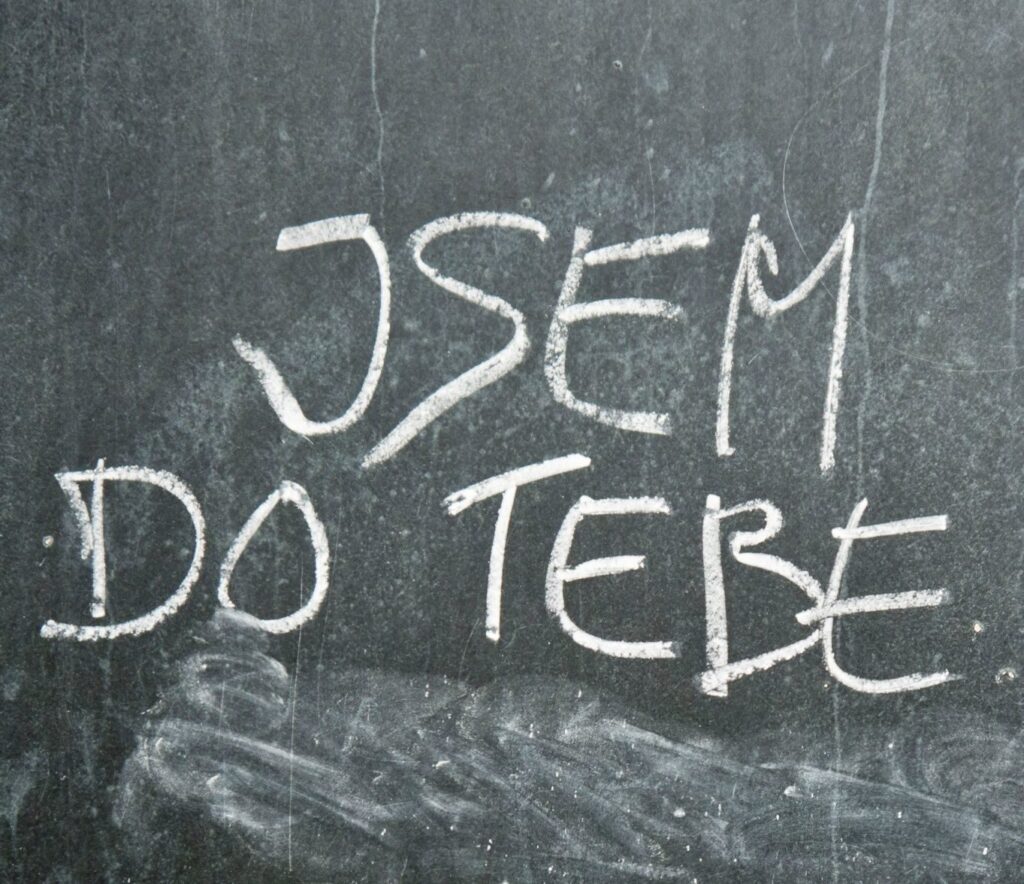 JSEM
DO TEBE